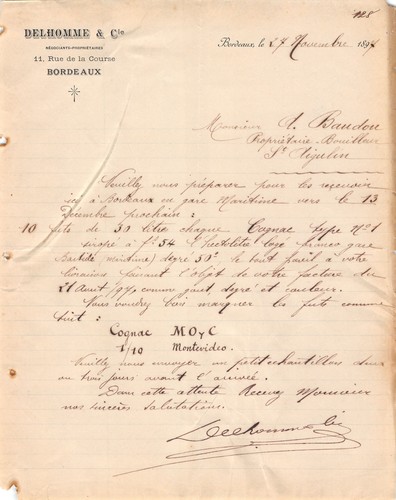 128
DELHOMME & Cie
NÉGOCIANTS-PROPRIÉTAIRES
11, Rue de la Course
BORDEAUX
Bordeaux, le 27 Novembre 1894
Monsieur A. Baudou
Propriétaire-Bouilleur
St Aigulin
Veuillez nous préparer pour les recevoir
ici à Bordeaux en gare Maritime vers le 15
Décembre prochain :
10 fûts de 30 litres chaque Cognac type No 1
à f. 54 l'hectolitre logé franco gare
Bastide (maritime) degré 50° le tout pareil à votre
livraison faisant l'objet de votre facture du
21 Août comme goût, degré et couleur.
Vous voudrez bien marquer les fûts comme
suit :
Cognac MOyC
1/10 Montevideo.
Veuillez nous envoyer un petit échantillon deux
ou trois jours avant l'arrivée.
Dans cette attente Recevez Monsieur
nos sincères salutations.
Delhomme & Cie